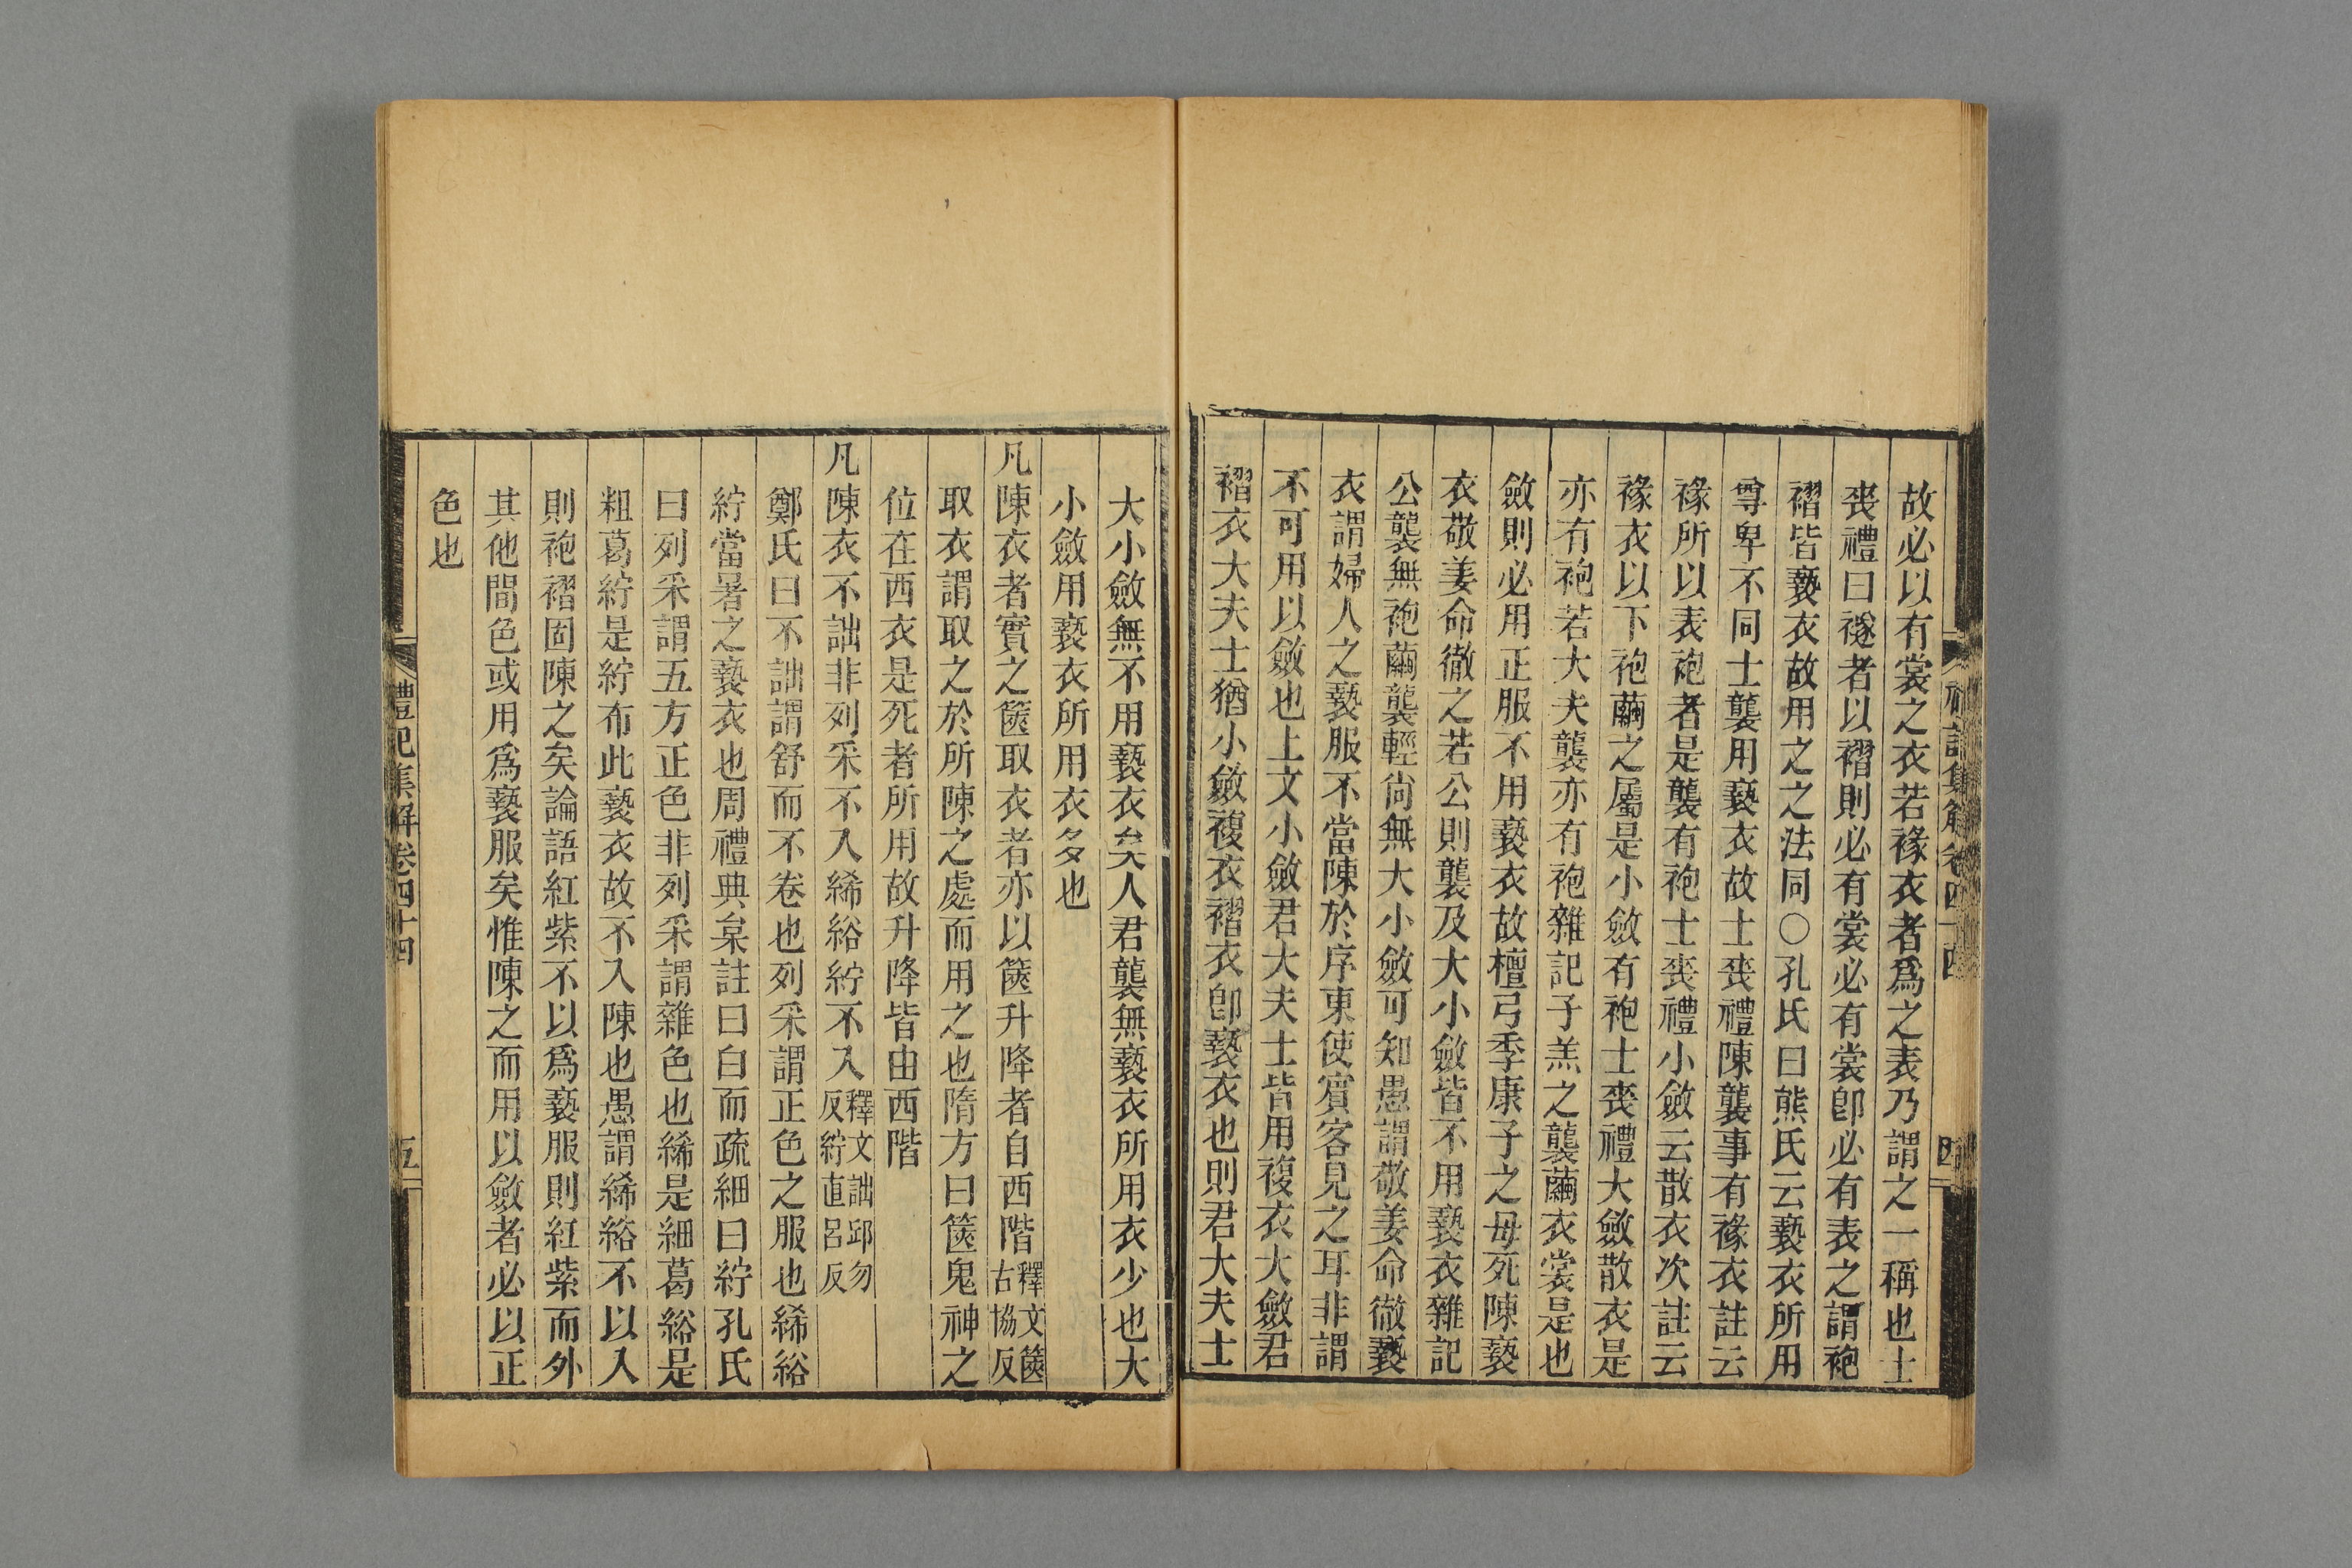 故必以有裳之衣若褖衣者爲之表乃謂之一稱也士
喪禮曰襚者以褶則必有裳必有裳卽必有表之謂袍
褶皆褻衣故用之之法同〇孔氏曰熊氏云褻衣所用
尊卑不同士襲用褻衣故士喪禮陳襲事有褖衣註云
褖所以表袍者是襲有袍士喪禮小斂云散衣次註云
褖衣以下袍繭之屬是小斂有袍士喪禮大斂散衣是
亦有袍若大夫襲亦有袍雜記子羔之襲繭衣裳是也
斂則必用正服不用褻衣故檀弓季康子之母死陳褻
衣敬姜命徹之若公則襲及大小斂皆不用褻衣雜記
公襲無袍繭襲輕尙無大小斂可知愚謂敬姜命徹褻
衣謂婦人之褻服不當陳於序東使賓客見之耳非謂
不可用以斂也上文小斂君大夫士皆用複衣大斂君
褶衣大夫士猶小斂複衣褶衣卽褻衣也則君大夫士
大小斂無不用褻衣矣人君襲無褻衣所用衣少也大
小斂用褻衣所用衣多也
凡陳衣者實之篋取衣者亦以篋升降者自西階釋文篋古協反
取衣謂取之於所陳之處而用之也隋方曰篋鬼神之
位在西衣是死者所用故升降皆由西階
凡陳衣不詘非列采不入絺綌紵不入釋文詘邱勿反紵直呂反
鄭氏曰不詘謂舒而不卷也列采謂正色之服也絺綌
紵當暑之褻衣也周禮典枲註曰白而疏細曰紵孔氏
曰列采謂五方正色非列采謂雜色也絺是細葛綌是
粗葛紵是紵布此褻衣故不入陳也愚謂絺綌不以入
則袍褶固陳之矣論語紅紫不以爲褻服則紅紫而外
其他間色或用爲褻服矣惟陳之而用以斂者必以正
色也
禮記集解卷四十四
五